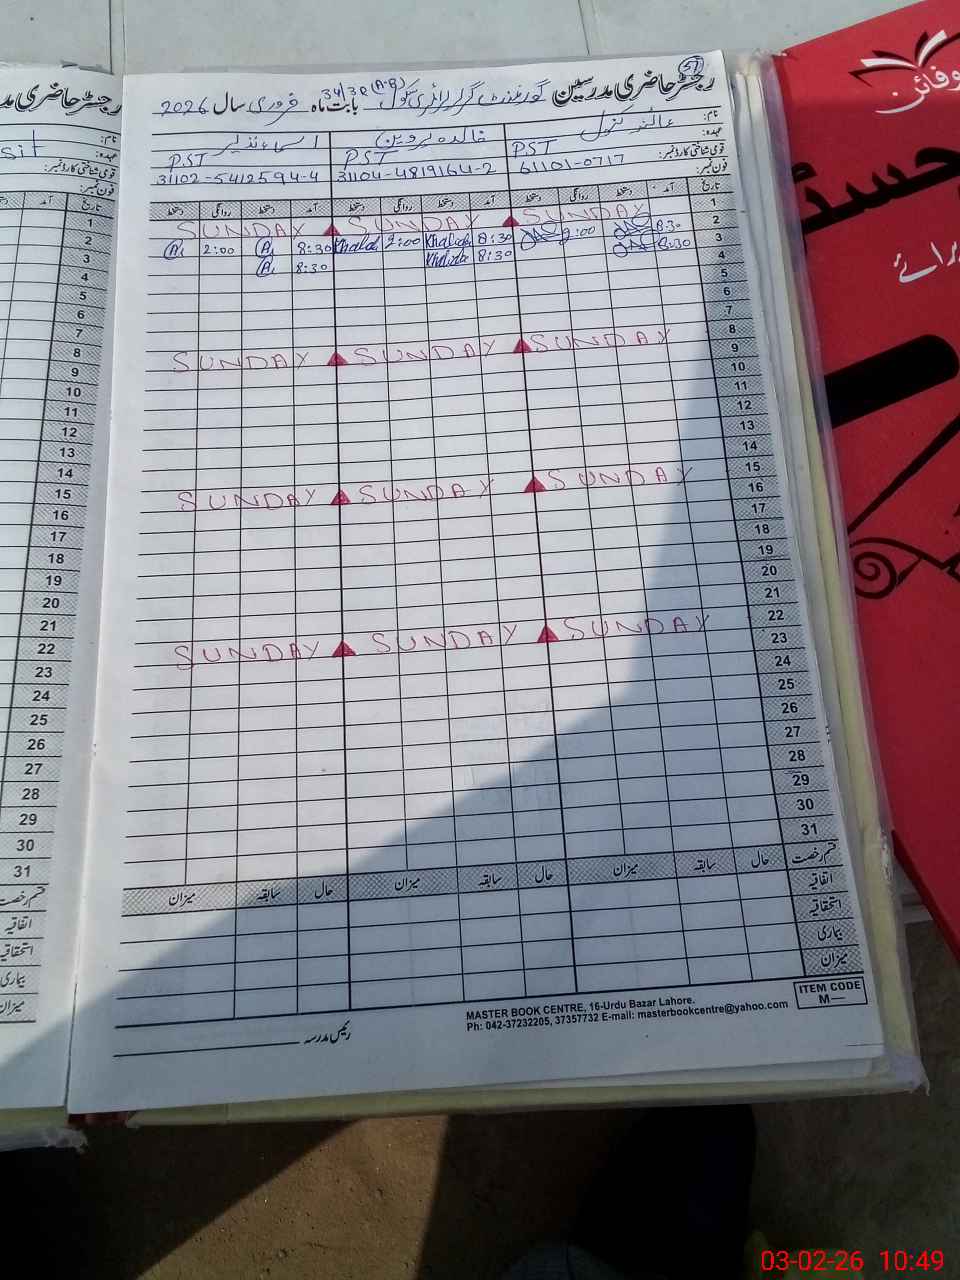 51
رجسٹر حاضری مدرسین گورنمنٹ گرلز پرائمری سکول 34/3R (A-B) بابت ماہ فروری سال 2026
نام: خالدہ پروین
عہدہ: PST PST PST
قومی شناختی کارڈ نمبر: 61101-0717 31104-4819164-2 31102-5412594-4
فون نمبر:
تاریخ آمد دستخط روانگی دستخط آمد دستخط روانگی دستخط آمد دستخط روانگی دستخط
1 SUNDAY SUNDAY SUNDAY
2 8:30 2:00 8:30 Khalida 2:00 Khalida 8:30 2:00
3 8:30 8:30 Khalida 8:30
4
5
6
7
8 SUNDAY SUNDAY SUNDAY
9
10
11
12
13
14
15 SUNDAY SUNDAY SUNDAY
16
17
18
19
20
21
22 SUNDAY SUNDAY SUNDAY
23
24
25
26
27
28
29
30
31
قسم رخصت حال سابقہ میزان حال سابقہ میزان حال سابقہ میزان
اتفاقیہ
استحقاقیہ
بیماری
میزان
رئیس مدرسہ
MASTER BOOK CENTRE, 16-Urdu Bazar Lahore.
Ph: 042-37232205, 37357732 E-mail: masterbookcentre@yahoo.com
ITEM CODE
M—
رجسٹر حاضری
sit
نام:
عہدہ:
قومی شناختی کارڈ نمبر:
فون نمبر:
تاریخ آمد
1
2
3
4
5
6
7
8
9
10
11
12
13
14
15
16
17
18
19
20
21
22
23
24
25
26
27
28
29
30
31
قسم رخصت
اتفاقیہ
استحقاقیہ
بیماری
میزان
برائے
03-02-26 10:49